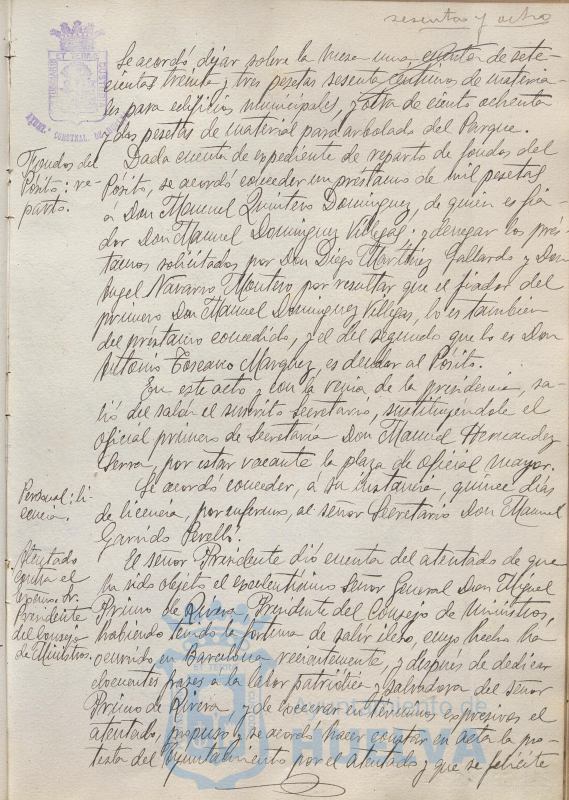 sesenta y ocho
Se acordó dejar sobre la mesa una cuenta de sete-
cientas treinta y tres pesetas sesenta céntimos de materia-
les para edificios municipales, y otra de ciento ochenta
y dos pesetas de material para arbolado del Parque.
Fondos del
Pósito: re-
parto.
Dada cuenta de expediente de reparto de fondos del
Pósito, se acordó conceder un préstamo de mil pesetas
a Don Manuel Quintero Domínguez, de quien es fia-
dor Don Manuel Domínguez Villegas; y denegar los prés-
tamos solicitados por Don Diego Martínez Gallardo y Don
Angel Navarro Montero por resultar que el fiador del
primero Don Manuel Domínguez Villegas, lo es tambien
del préstamo concedido, y el del segundo que lo es Don
Antonio Toscano Marquez, es deudor al Pósito.
En este acto y con la venia de la presidencia, sa-
lió del salón el suscrito secretario, sustituyéndole el
oficial primero de Secretaría Don Manuel Hernandez
Serra, por estar vacante la plaza de oficial mayor.
Personal: li-
cencia.
Se acordó conceder, a su instancia, quince días
de licencia, por enfermo, al señor Secretario Don Manuel
Garrido Perelló.
Atentado
contra el
Excmo. Sr.
Presidente
del Consejo
de Ministros.
El señor Presidente dió cuenta del atentado de que
ha sido objeto el excelentísimo Señor General Don Miguel
Primo de Rivera Presidente del Consejo de Ministros,
habiendo tenido la fortuna de salir ileso, cuyo hecho ha
ocurrido en Barcelona recientemente, y después de dedicar
elocuentes frases a la labor patriótica y salvadora del señor
Primo de Rivera y de execrar en términos expresivos el
atentado, propuso y se acordó hacer constar en acta la pro-
testa del Ayuntamiento por el atentado y que se felicite
Ayuntamiento de
HUELVA